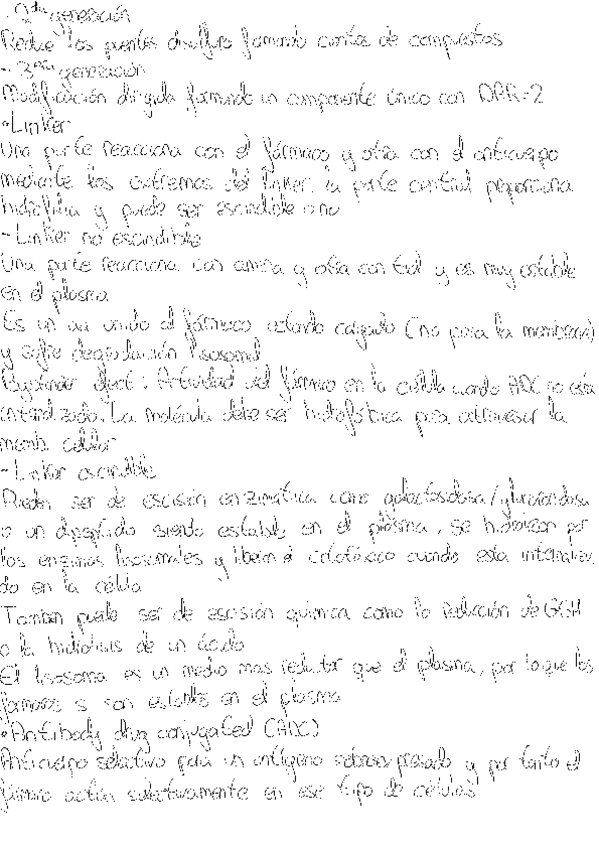 - 2da generación
Reduce los puentes disulfuro formando cientos de compuestos
- 3era generación
Modificación dirigida formando un componente único con DAR=2
•Linker
Una parte reacciona con el fármaco y otra con el anticuerpo
mediante los extremos del linker, la parte central proporciona
hidrofilia y puede ser escindible o no
- Linker no escindible
Una parte reacciona con amina y otra con tiol y es muy estable
en el plasma
Es un aa unido al fármaco estando cargado (no pasa la membrana)
y sufre degradación lisosomal
Bystander effect: Actividad del fármaco en la célula cuando ADC no está
internalizado. La molécula debe ser hidrofóbica para atravesar la
memb. celular
- Linker escindible
Pueden ser de escisión enzimática como galactosidasa/glucuronidasa
o un dipéptido siendo estable en el plasma, se hidrolizan por
los enzimas lisosomales y liberan el citotóxico cuando esta internaliza-
do en la célula
Tambien puede ser de escisión química como la reducción de GSH
o la hidrólisis de un ácido
El lisosoma es un medio mas reductor que el plasma, por lo que los
fármacos si son estables en el plasma
•Antibody drug conjugated (ADC)
Anticuerpo selectivo para un antígeno sobreexpresado y por tanto el
fármaco actúa selectivamente en ese tipo de células